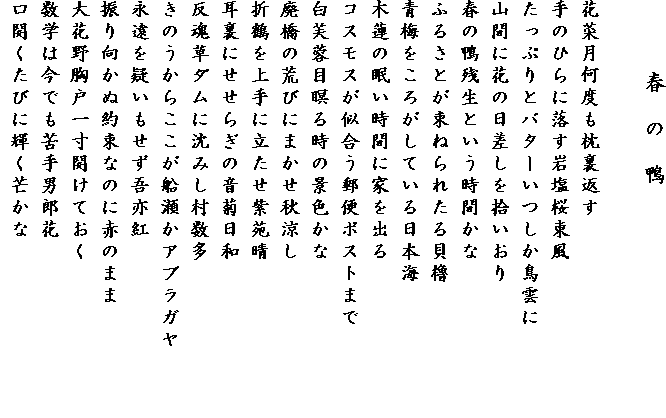 春の鴨
花菜月何度も枕裏返す
手のひらに落す岩塩桜東風
たっぷりとバターいつしか鳥雲に
山間に花の日差しを拾いおり
春の鴨残生という時間かな
ふるさとが束ねられたる貝櫓
青梅をころがしている日本海
木蓮の眠い時間に家を出る
コスモスが似合う郵便ポストまで
白芙蓉目瞑る時の景色かな
廃橋の荒びにまかせ秋涼し
折鶴を上手に立たせ紫苑晴
耳裏にせせらぎの音菊日和
反魂草ダムに沈みし村数多
きのうからここが船瀬かアブラガヤ
永遠を疑いもせず吾亦紅
振り向かぬ約束なのに赤のまま
大花野胸戸一寸開けておく
数学は今でも苦手男郎花
口開くたびに輝く芒かな